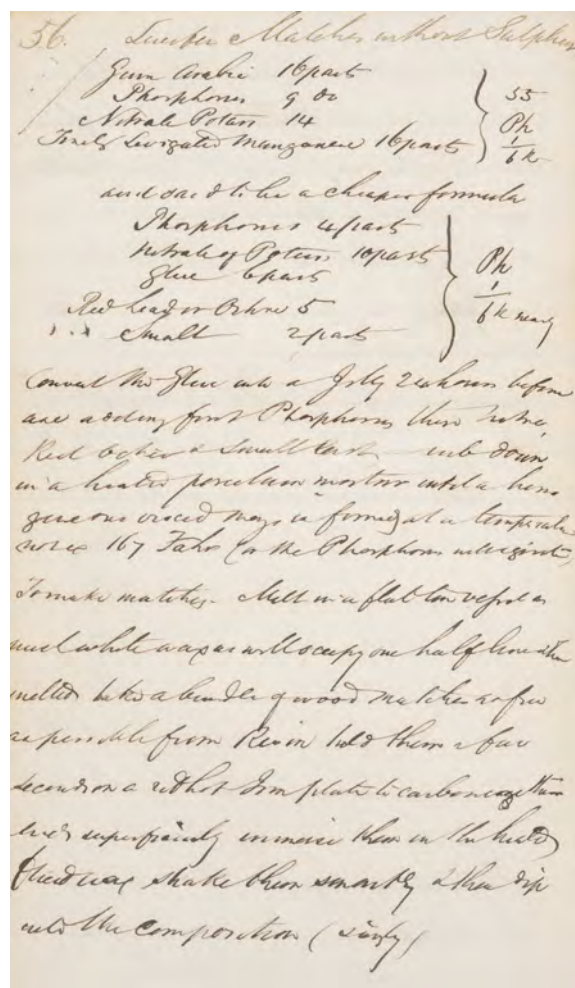 56. Lucifer Matches without Sulphur
Gum Arabic 16 parts
Phosphorus 9 Do
Nitrate Potass 14
Finely Levigated Manganese 16 parts
55
Ph
1
6 K
and said to be a cheaper formula
Phosphorus 4 parts
Nitrate of Potass 10 parts
Glue 6 parts
Red Lead or Ochre 5
Smalt 2 parts
Ph
1
6 K nearly
Convert the Glue into a Jelly 24 hours before
use adding first Phosphorus then Nitre
Red Ochre & Smalt last rub down
in a heated porcelain mortar until a homo
geneous viscid mass is formed at a temperature
not ex 167 Fahr (or the Phosphorus will ignite)
To make matches. Melt in a flat tin vessel as
much white wax as will occupy one half line when
melted take a bundle of wood matches as free
as possible from Resin hold them a few
seconds on a red hot Iron plate to carbonize them
superficially immerse them in the heated
fluid wax shake them smartly & then dip
into the composition (